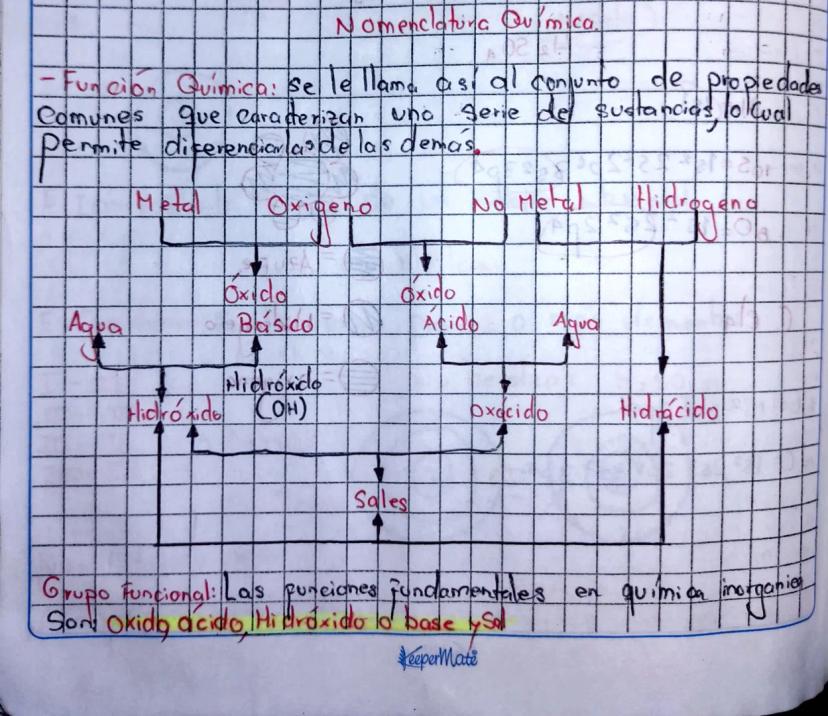 Nomenclatura Química.
- Función Química: se le llama así al conjunto de propiedades
comunes que caracterizan una serie de sustancias, lo cual
permite diferenciarlas de las demás.
Metal Oxigeno No Metal Hidrogeno
Óxido Óxido
Agua Básico Ácido Agua
Hidróxido
Hidróxido (OH) Oxácido Hidrácido
Sales
Grupo Funcional: Las funciones fundamentales en química inorganica
Son: Oxido, ácido, Hidróxido o base y Sal
KeeperMate